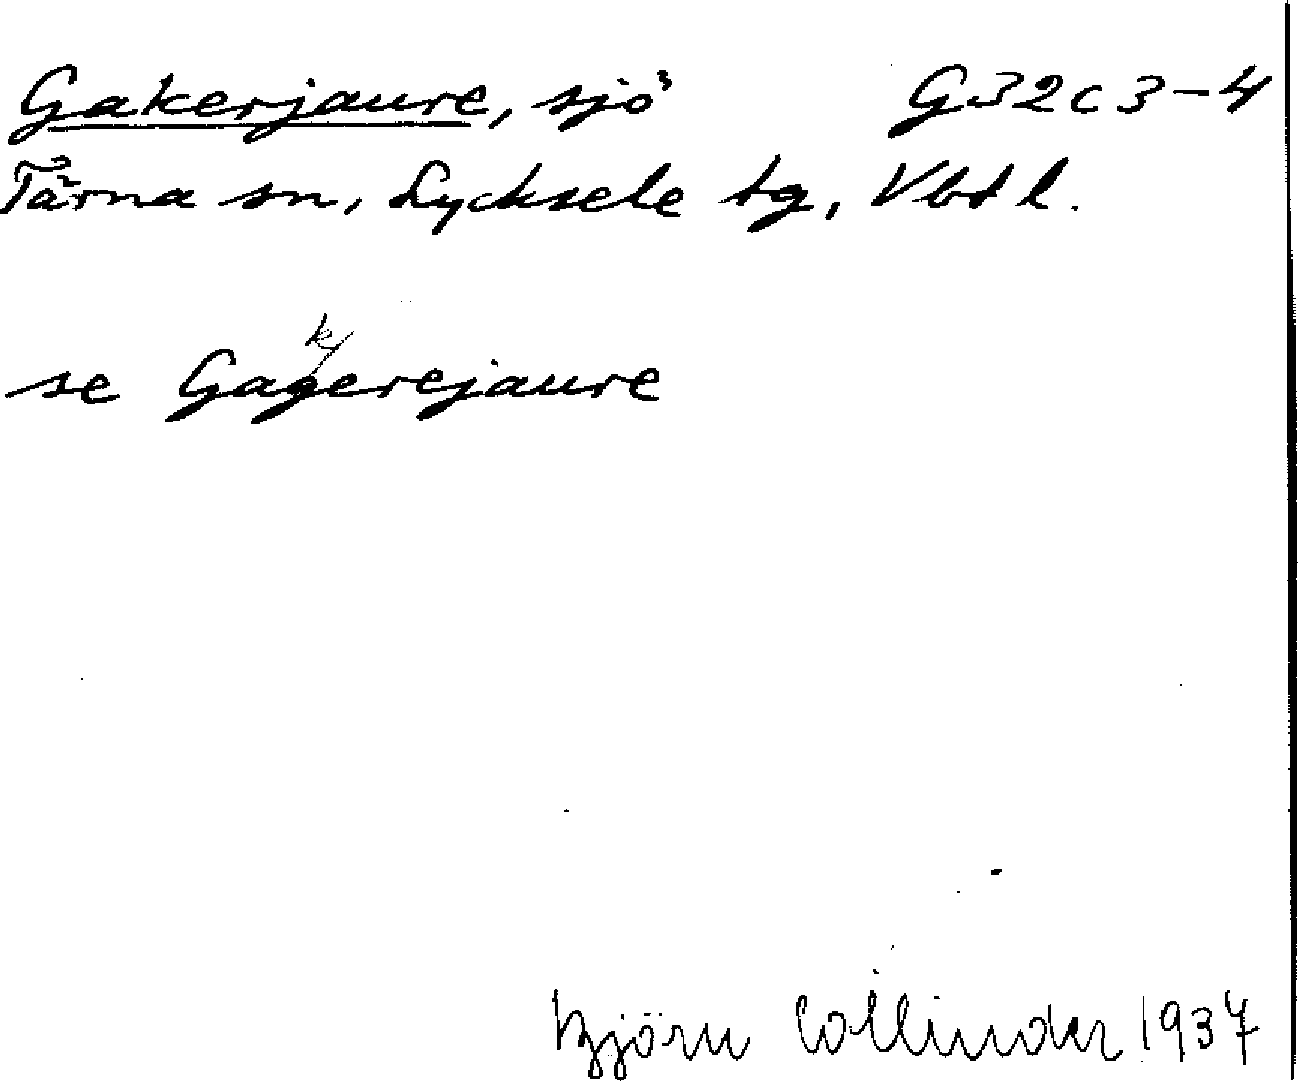 Gakerjaure, sjö G32c3-4
Tärna sn, Lycksele tg, Vbtl.
k/
se Gagerejaure
Björn Collinder 1937